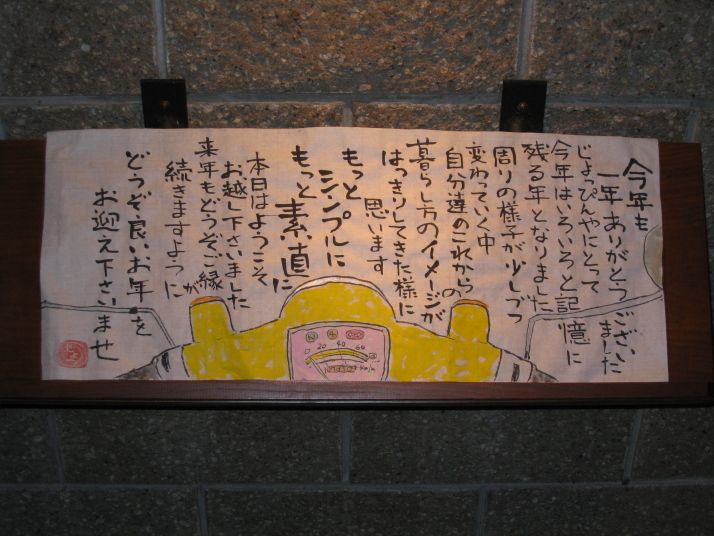 今年も
一年ありがとうございました
じょっぴんやにとって
今年はいろいろと記憶に
残る年となりました
周りの様子が少しづつ
変わっていく中
自分達のこれからの
暮らし方のイメージが
はっきりしてきた様に
思います
もっと
シンプルに
もっと素直に
本日はようこそ
お越し下さいました
来年もどうぞご縁が
続きますように
どうぞ良いお年を
お迎え下さいませ
0 20 40 60
Km/h
N